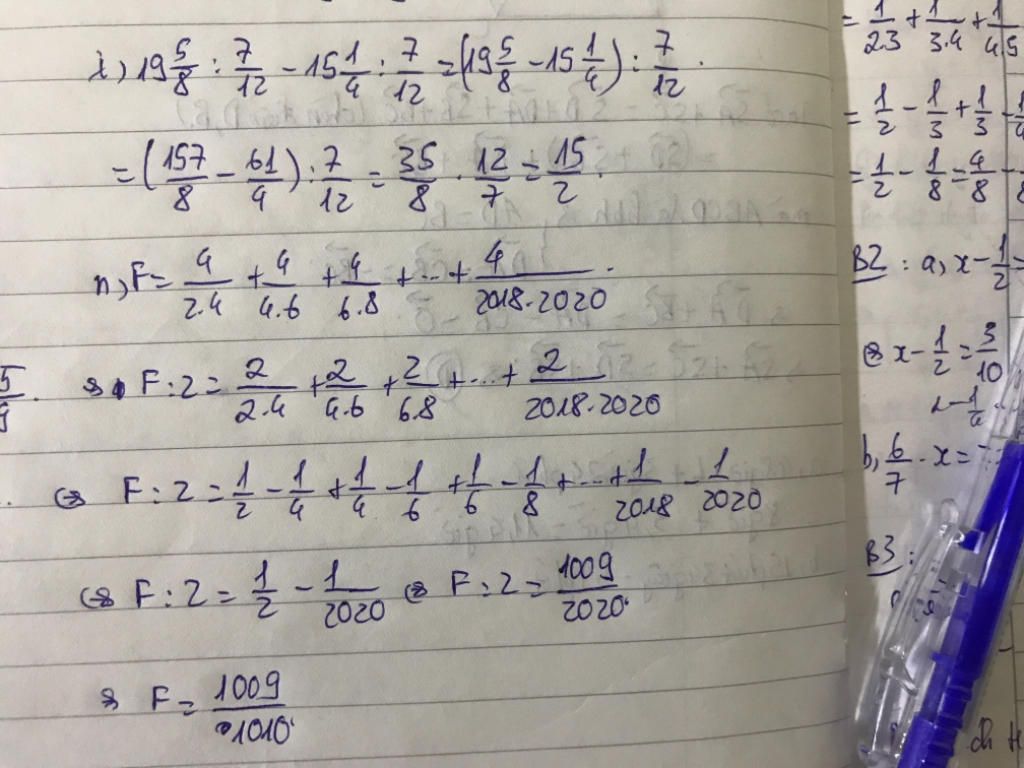 λ) 19 5/8 : 7/12 - 15 1/4 : 7/12 = (19 5/8 - 15 1/4) : 7/12.
= (157/8 - 61/4) : 7/12 = 35/8 . 12/7 = 15/2.
n, F = 4/2.4 + 4/4.6 + 4/6.8 + ... + 4/2018.2020.
⇒ F : 2 = 2/2.4 + 2/4.6 + 2/6.8 + ... + 2/2018.2020
⇔ F : 2 = 1/2 - 1/4 + 1/4 - 1/6 + 1/6 - 1/8 + ... + 1/2018 - 1/2020
⇔ F : 2 = 1/2 - 1/2020 ⇔ F : 2 = 1009/2020.
⇒ F = 1009/1010.
5/9.
= 1/2.3 + 1/3.4 + 1/4.5
= 1/2 - 1/3 + 1/3 -
= 1/2 - 1/8 = 4/8 -
B2 : a, x - 1/2 =
⇔ x - 1/2 = 3/10
b, 6/7 . x =
B3 :